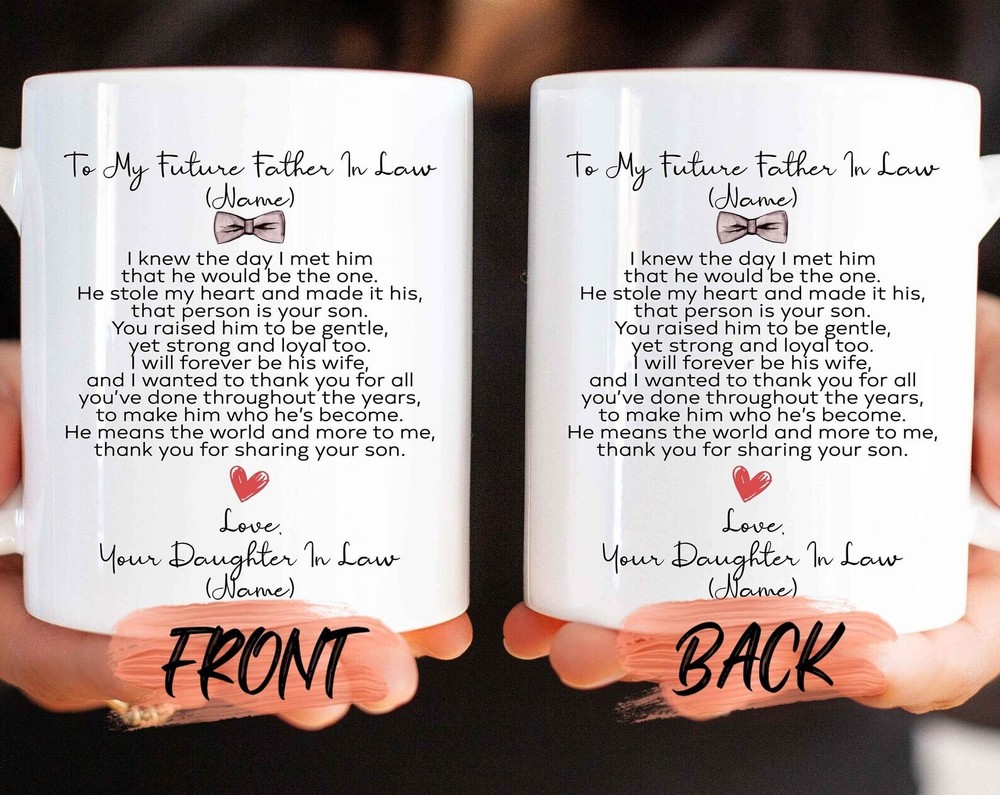 To My Future Father In Law
(Name)
I knew the day I met him
that he would be the one.
He stole my heart and made it his,
that person is your son.
You raised him to be gentle,
yet strong and loyal too.
I will forever be his wife,
and I wanted to thank you for all
you've done throughout the years,
to make him who he's become.
He means the world and more to me,
thank you for sharing your son.
Love,
Your Daughter In Law
(Name)
FRONT
To My Future Father In Law
(Name)
I knew the day I met him
that he would be the one.
He stole my heart and made it his,
that person is your son.
You raised him to be gentle,
yet strong and loyal too.
I will forever be his wife,
and I wanted to thank you for all
you've done throughout the years,
to make him who he's become.
He means the world and more to me,
thank you for sharing your son.
Love,
Your Daughter In Law
(Name)
BACK